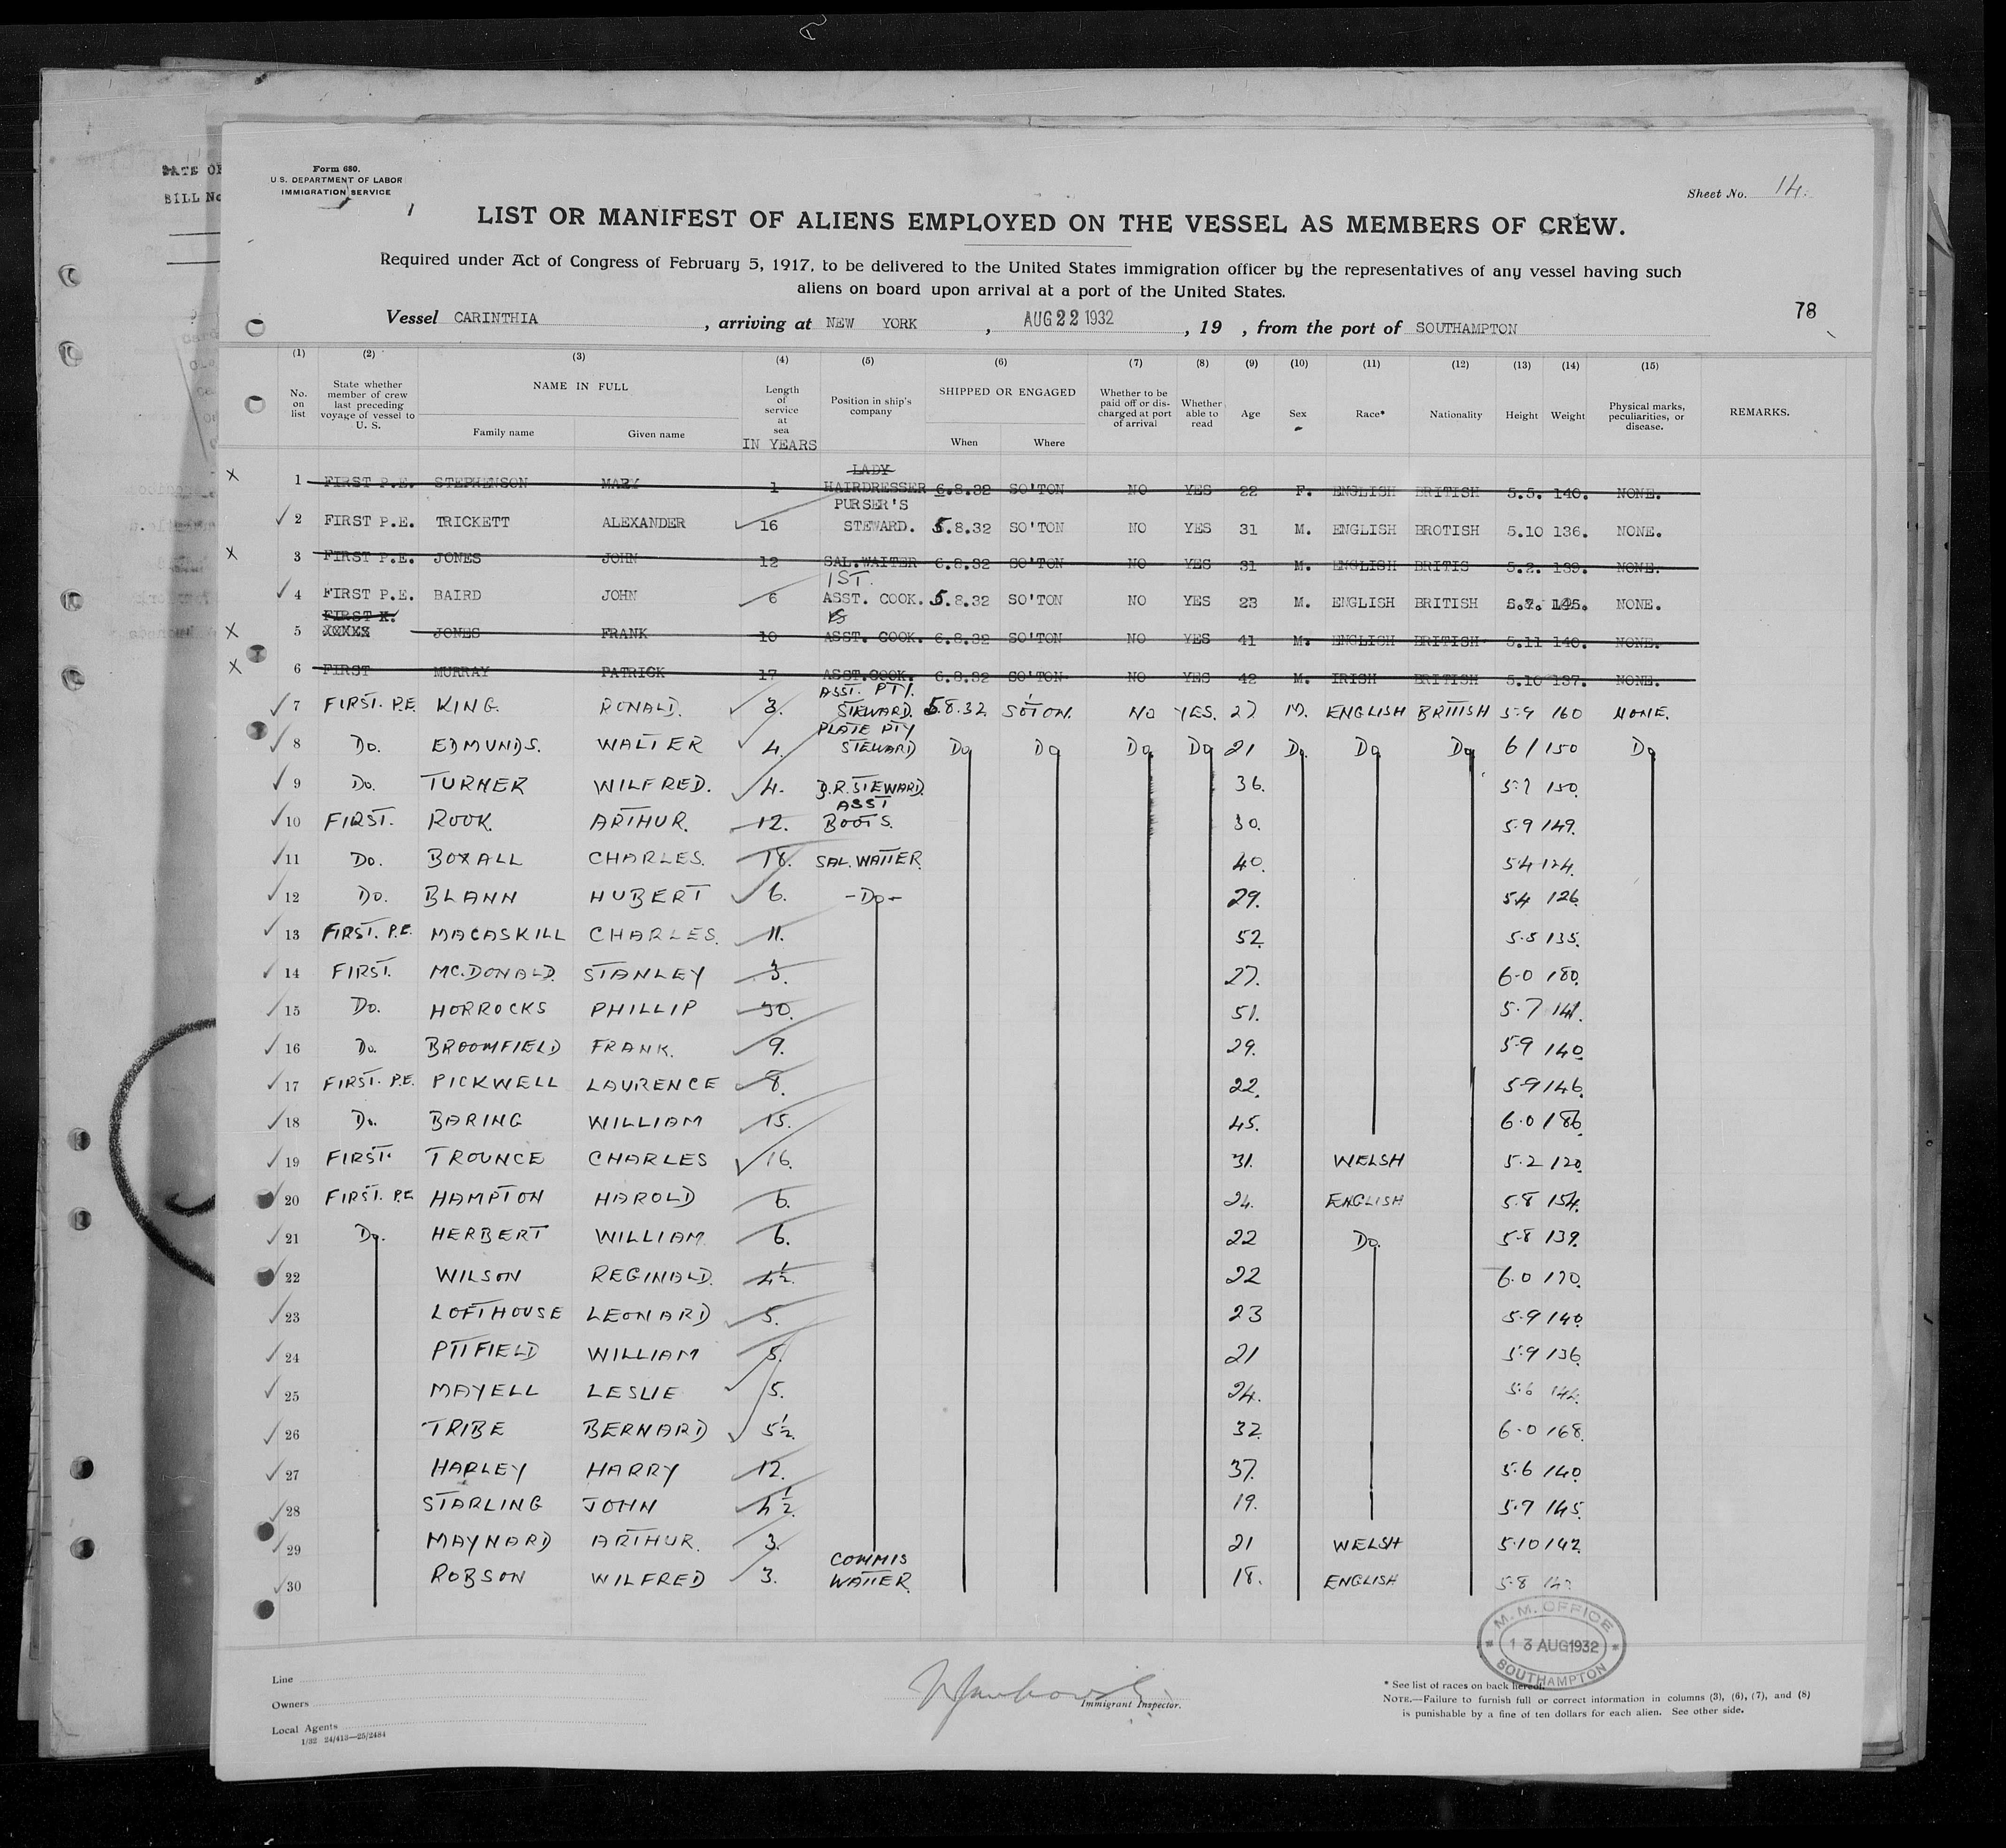 DATE OF
BILL No
Form 680.
U.S. DEPARTMENT OF LABOR
IMMIGRATION SERVICE
Sheet No. 14.
LIST OR MANIFEST OF ALIENS EMPLOYED ON THE VESSEL AS MEMBERS OF CREW.
Required under Act of Congress of February 5, 1917, to be delivered to the United States immigration officer by the representatives of any vessel having such
aliens on board upon arrival at a port of the United States.
78
Vessel CARINTHIA , arriving at NEW YORK , AUG 22 1932 , 19 , from the port of SOUTHAMPTON
(1) (2) (3) (4) (5) (6) (7) (8) (9) (10) (11) (12) (13) (14) (15)
No. on list State whether member of crew last preceding voyage of vessel to U. S. NAME IN FULL Family name Given name Length of service at sea IN YEARS Position in ship's company SHIPPED OR ENGAGED When Where Whether to be paid off or discharged at port of arrival Whether able to read Age Sex Race* Nationality Height Weight Physical marks, peculiarities, or disease. REMARKS.
X 1 FIRST P.E. STEPHENSON MARY 1 LADY HAIRDRESSER 6.8.32 SO'TON NO YES 22 F. ENGLISH BRITISH 5.5. 140. NONE.
2 FIRST P.E. TRICKETT ALEXANDER 16 PURSER'S STEWARD. 5.8.32 SO'TON NO YES 31 M. ENGLISH BROTISH 5.10 136. NONE.
X 3 FIRST P.E. JONES JOHN 12 SAL.WAITER 6.8.32 SO'TON NO YES 31 M. ENGLISH BRITIS 5.2. 139. NONE.
4 FIRST P.E. BAIRD JOHN 6 1ST. ASST. COOK. 5.8.32 SO'TON NO YES 23 M. ENGLISH BRITISH 5.7. 145. NONE.
X 5 FIRST X. XXXXX JONES FRANK 10 ASST. COOK. 6.8.32 SO'TON NO YES 41 M. ENGLISH BRITISH 5.11 140. NONE.
X 6 FIRST MURRAY PATRICK 17 ASST.COOK. 6.8.32 SO'TON NO YES 42 M. IRISH BRITISH 5.10 137. NONE.
7 FIRST. P.E. KING. RONALD. 3. ASST. PTY. STEWARD. 5.8.32 SO'TON. NO YES. 27 M. ENGLISH BRITISH 5.9 160 NONE.
8 Do. EDMUNDS. WALTER 4. PLATE PTY STEWARD Do Do Do Do 21 Do. Do Do 6/ 150 Do
9 Do. TURNER WILFRED. 4. B.R. STEWARD. 36. 5.7 150.
10 FIRST. ROOK. ARTHUR. 12. ASST BOOTS. 30. 5.9 149.
11 Do. BOXALL CHARLES. 18. SAL. WAITER. 40. 5.4 124.
12 Do. BLANN HUBERT 6. -Do- 29. 5.4 126.
13 FIRST. P.E. MACASKILL CHARLES. 11. 52. 5.5 135.
14 FIRST. MC.DONALD. STANLEY 3. 27. 6.0 180.
15 Do. HORROCKS PHILLIP 30. 51. 5.7 141.
16 Do. BROOMFIELD FRANK. 9. 29. 5.9 140.
17 FIRST. P.E. PICKWELL LAURENCE 8. 22. 5.9 146.
18 Do. BARING WILLIAM 15. 45. 6.0 186.
19 FIRST. TROUNCE CHARLES 16. 31. WELSH 5.2 120.
20 FIRST. P.E. HAMPTON HAROLD 6. 24. ENGLISH 5.8 154.
21 Do. HERBERT WILLIAM. 6. 22 Do. 5.8 139.
22 WILSON REGINALD. 4½. 22 6.0 170.
23 LOFTHOUSE LEONARD 5. 23 5.9 140.
24 PITFIELD WILLIAM 5. 21 5.9 136.
25 MAYELL LESLIE 5. 24. 5.6 144.
26 TRIBE BERNARD 5½. 32. 6.0 168.
27 HARLEY HARRY 12. 37. 5.6 140.
28 STARLING JOHN 4½. 19. 5.7 145.
29 MAYNARD ARTHUR. 3. 21 WELSH 5.10 142.
30 ROBSON WILFRED 3. COMMIS WAITER. 18. ENGLISH 5.8
M. M. OFFICE
13 AUG 1932
SOUTHAMPTON
Line
Owners
Local Agents
1/32 24/413—25/2484
Immigrant Inspector.
* See list of races on back hereof.
NOTE.—Failure to furnish full or correct information in columns (3), (6), (7), and (8)
is punishable by a fine of ten dollars for each alien. See other side.